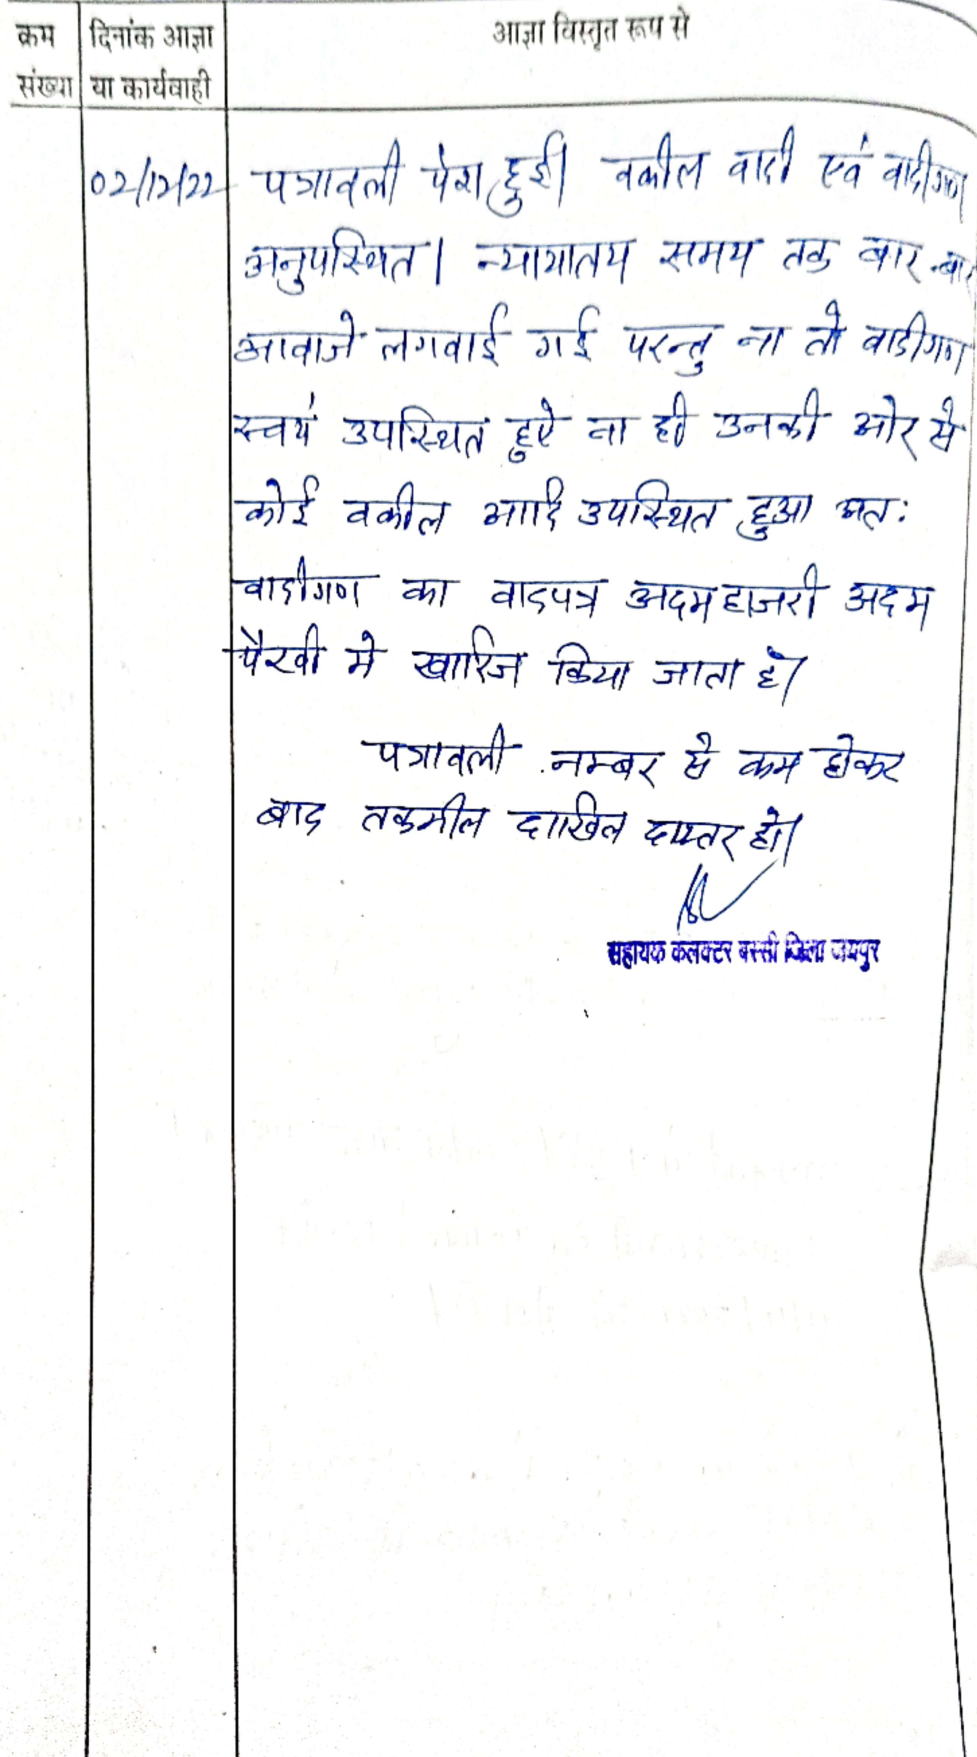 क्रम संख्या
दिनांक आज्ञा या कार्यवाही
आज्ञा विस्तृत रूप से
02/12/22
पत्रावली पेश हुई। वकील वादी एवं वादीगण
अनुपस्थित। न्यायालय समय तक बार-बार
आवाजे लगवाई गई परन्तु ना तो वादीगण
स्वयं उपस्थित हुऐ ना ही उनकी ओर से
कोई वकील आदि उपस्थित हुआ अतः
वादीगण का वादपत्र अदम हाजरी अदम
पैरवी मे खारिज किया जाता है।
पत्रावली नम्बर से कम होकर
बाद तकमील दाखिल दफ्तर हो।
सहायक कलक्टर बस्सी जिला जयपुर